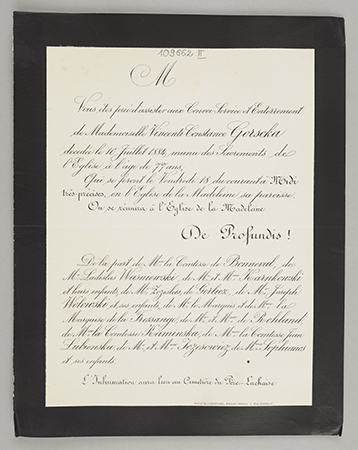 109662 II
M
Vous êtes prié d'assister aux Convoi Service et Enterrement
de Mademoiselle Vincenti Constance Gorscka
décédée le 16 Juillet 1884, munie des Sacrements de
l'Eglise, à l'âge de 77 ans,
Qui se feront le Vendredi 18 du courant à Midi
très-précises, en l'Eglise de la Madeleine sa paroisse.
On se réunira à l'Eglise de la Madeleine
De Profundis !
De la part de Mme la Comtesse de Bonneval, de
Mr Ladislas Wasniewski, de Mr et Mme Karnkowski
et leurs enfants, de Mr Zozislas de Gorlox, de Mr Joseph
Wolowski et ses enfants, de Mr le Marquis et de Mme la
Marquise de la Fressange, de Mr et Mme de Rochland,
de Mme la Comtesse Kaminska, de Mme la Comtesse Jean
Lubienska, de Mr et Mme Jozesowicz, de Mme
et ses enfants.
L'Inhumation aura lieu au Cimetière du Père-Lachaise